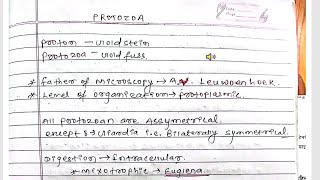 PROTOZOA
Protozoa - Goldfuss.
* Father of Microscopy → A.V. Leuwoenhoek.
* Level of organization → protoplasmic.
All protozoan are Assymetrical.
except → Giardia i.e. Bilateraly symmetrical.
Digestion → Intracellular.
* mixotrophic → Euglena.